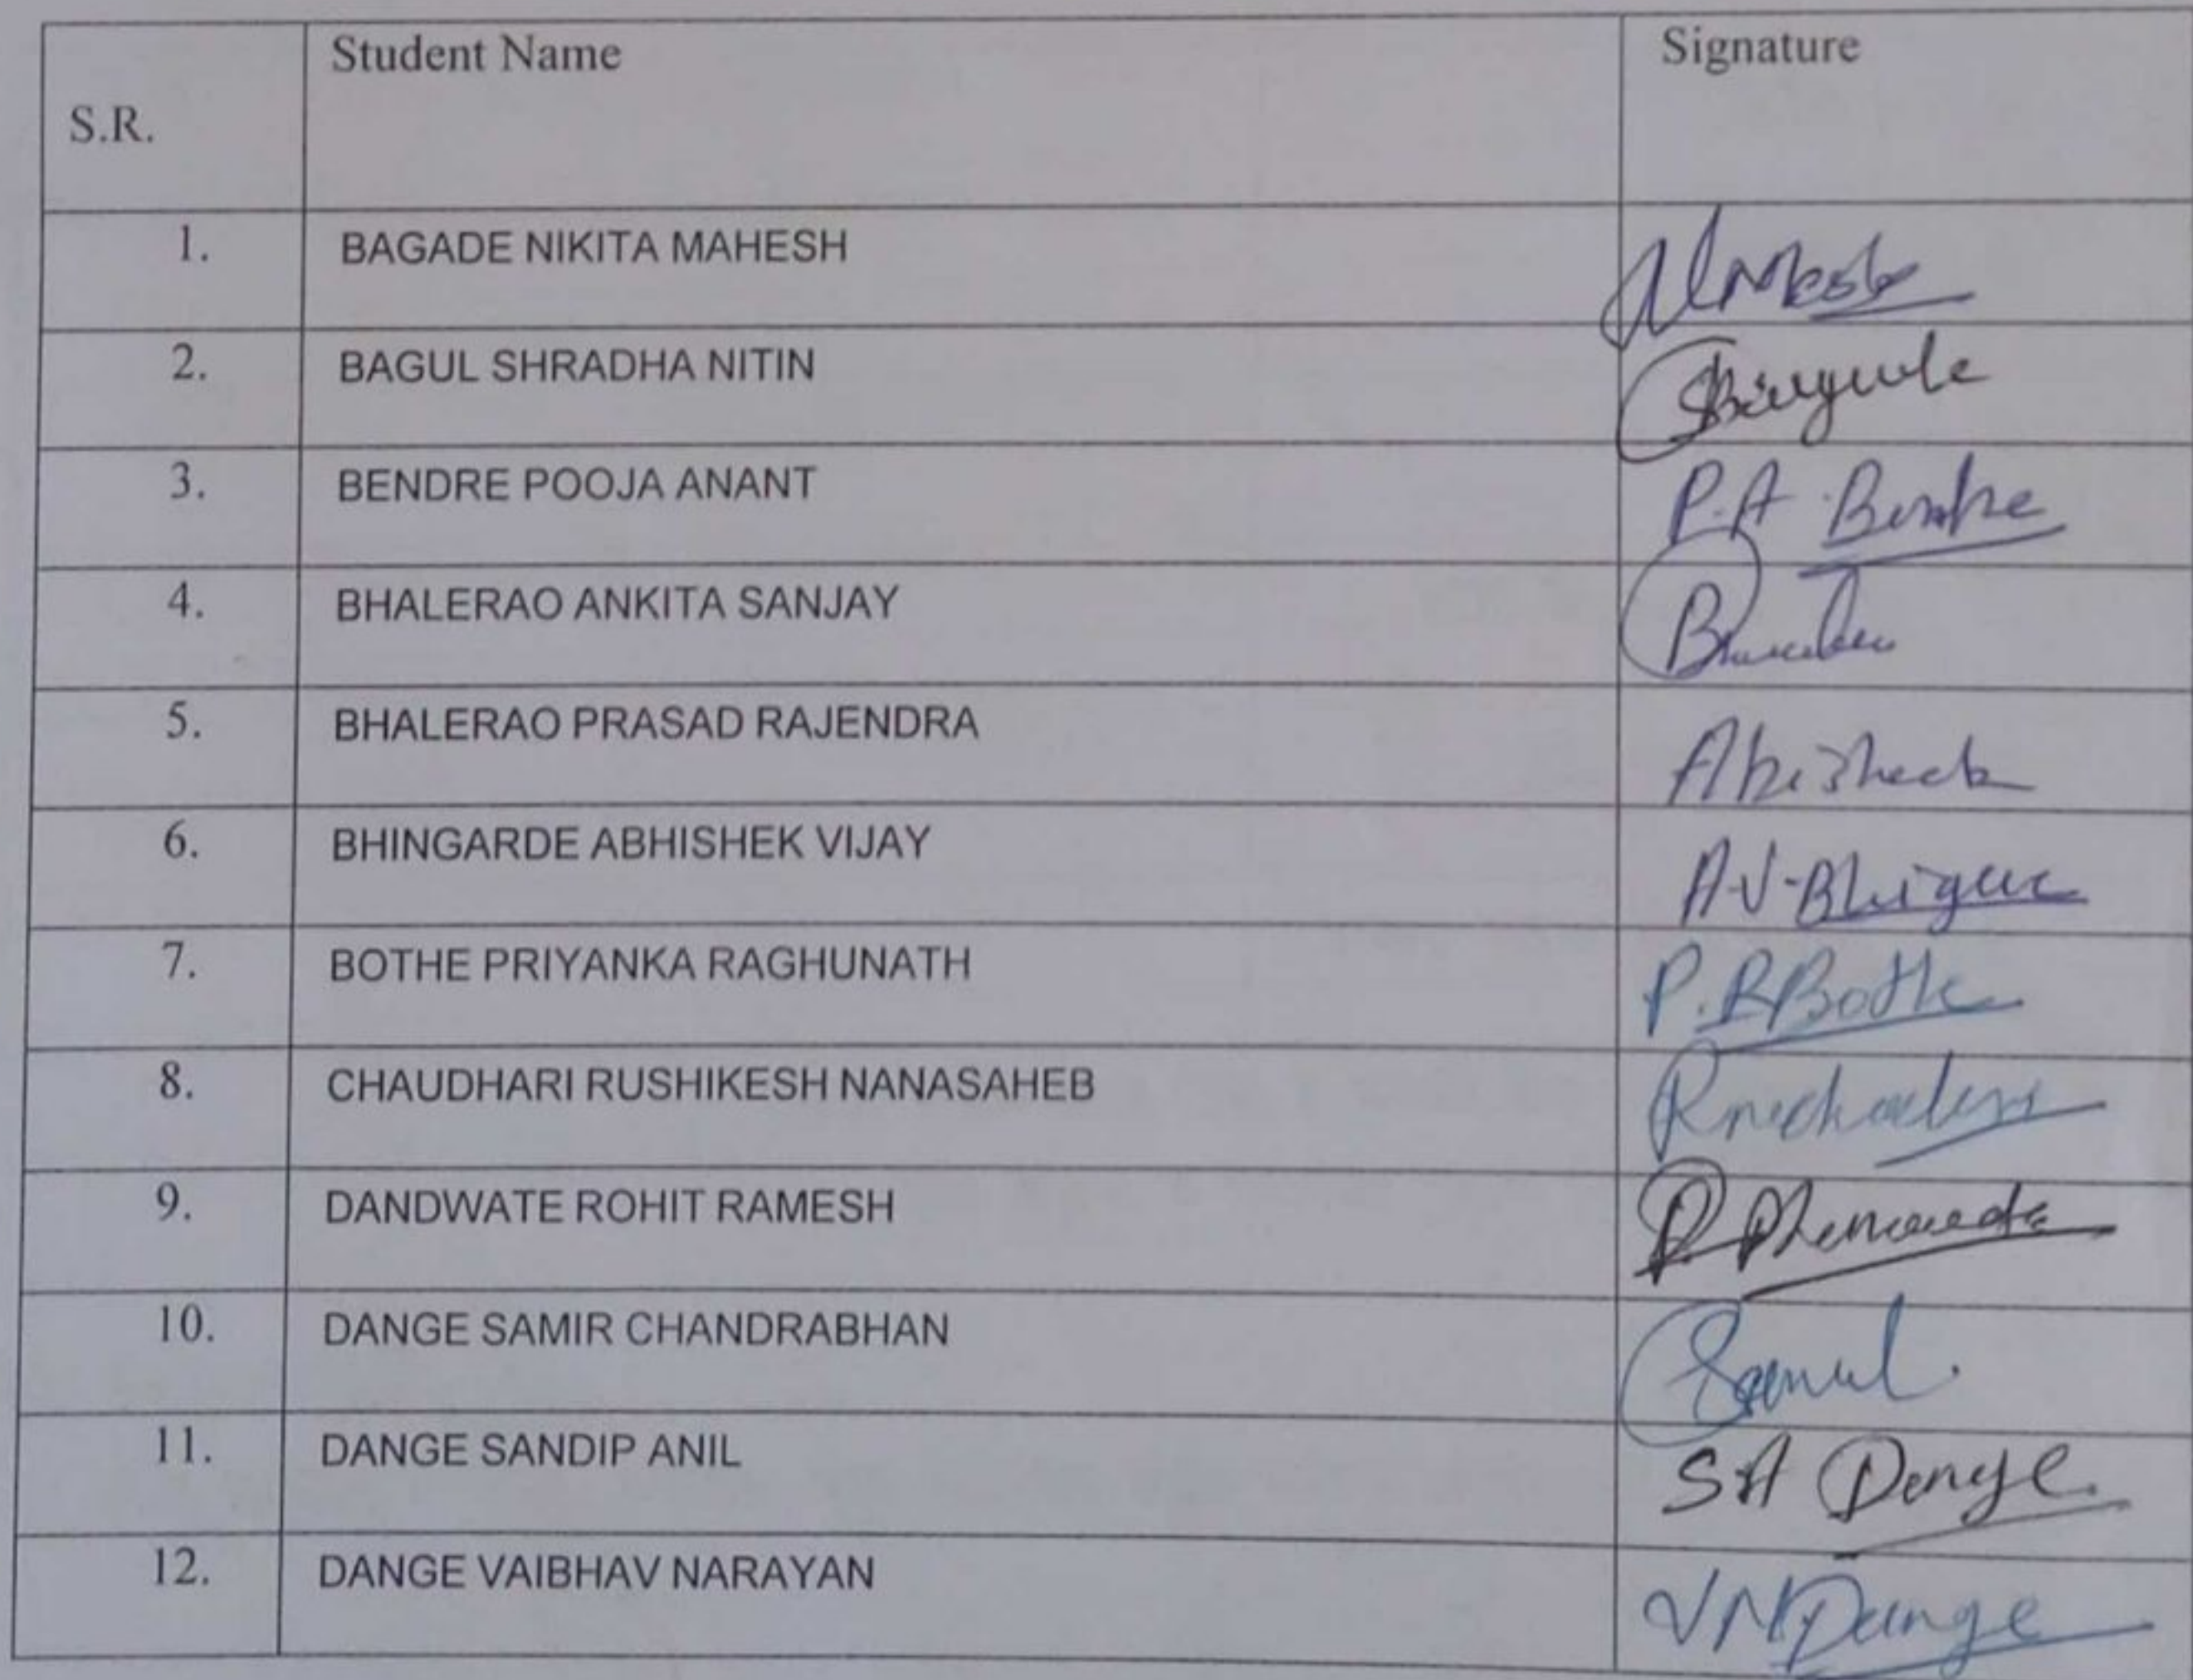 S.R. Student Name Signature
1. BAGADE NIKITA MAHESH
2. BAGUL SHRADHA NITIN
3. BENDRE POOJA ANANT P.A. Bendre
4. BHALERAO ANKITA SANJAY
5. BHALERAO PRASAD RAJENDRA
6. BHINGARDE ABHISHEK VIJAY A.V.
7. BOTHE PRIYANKA RAGHUNATH P.R Bothe
8. CHAUDHARI RUSHIKESH NANASAHEB
9. DANDWATE ROHIT RAMESH
10. DANGE SAMIR CHANDRABHAN
11. DANGE SANDIP ANIL SA Dange
12. DANGE VAIBHAV NARAYAN VN Dange